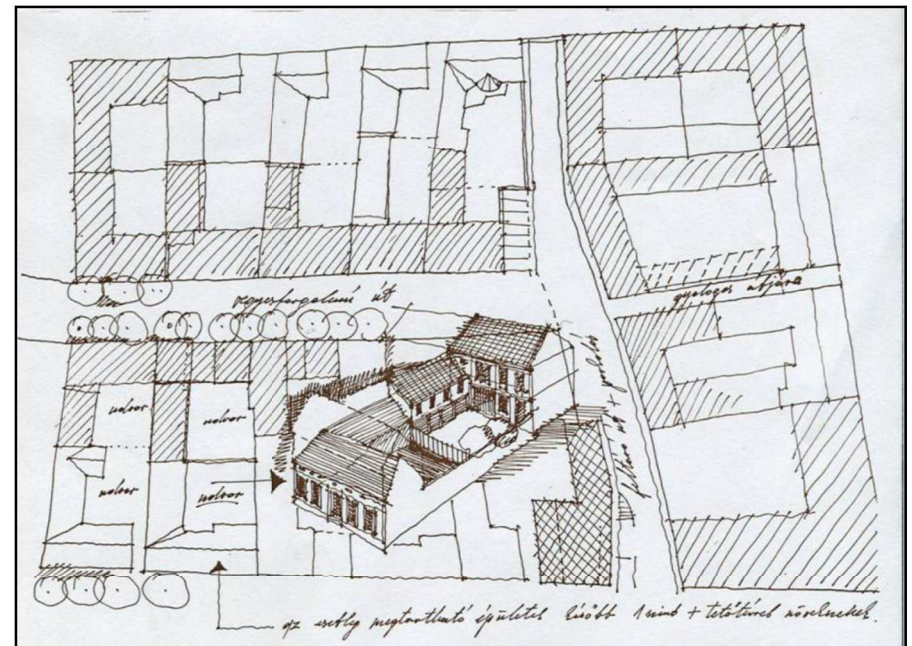 vegyesforgalmú út
gyalogos átjáró
udvar
udvar
udvar
udvar
út + parkolás
az esetleg megtartható épületek később 1 szint + tetőtérrel növelhetők.